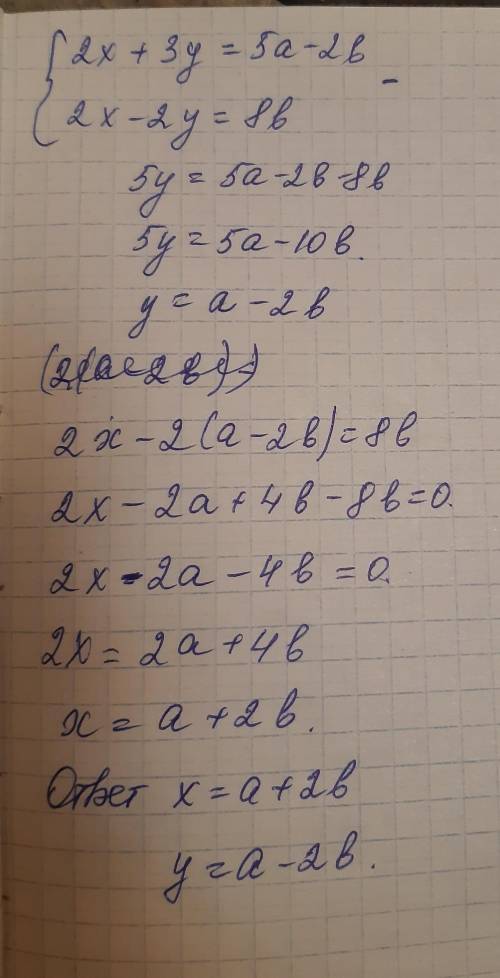 2x + 3y = 5a - 2b
-
2x - 2y = 8b
5y = 5a - 2b - 8b
5y = 5a - 10b.
y = a - 2b
2x - 2(a - 2b) = 8b
2x - 2a + 4b - 8b = 0.
2x - 2a - 4b = 0.
2x = 2a + 4b
x = a + 2b.
Ответ x = a + 2b
y = a - 2b.